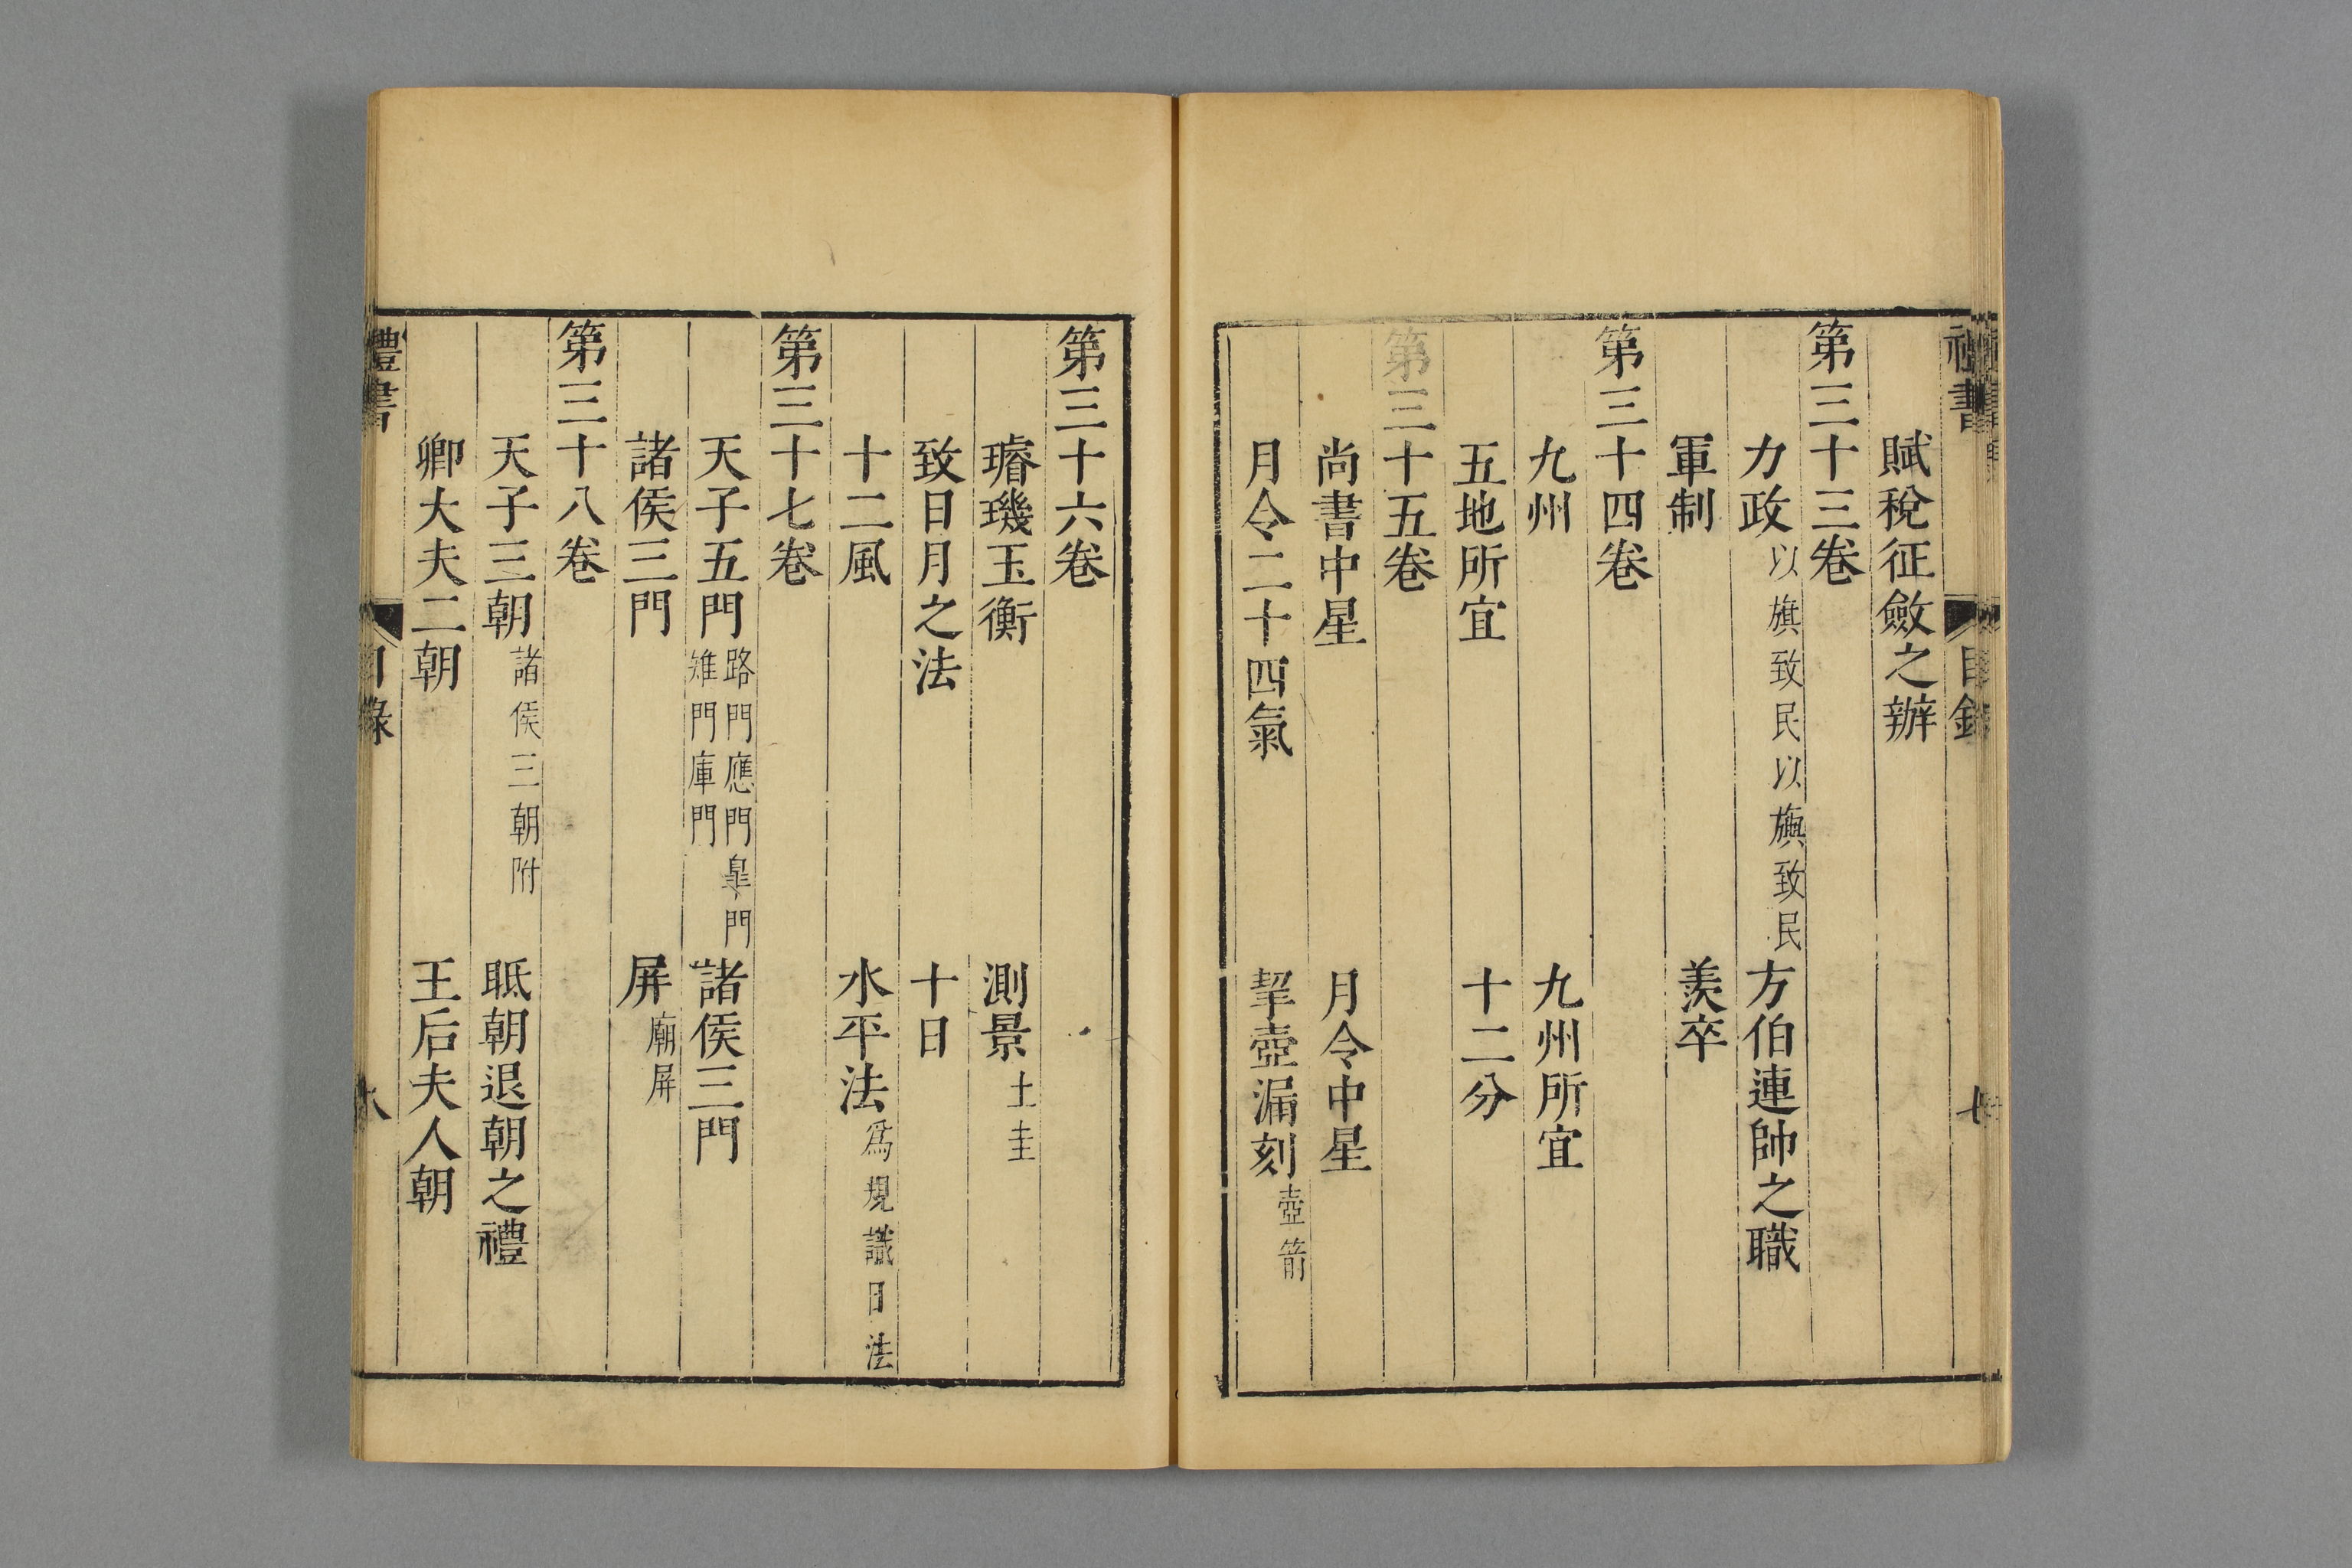 賦稅征斂之辦
第三十三卷
力政 以旗致民以旟致民 方伯連帥之職
軍制 羨卒
第三十四卷
九州 九州所宜
五地所宜 十二分
第三十五卷
尚書中星 月令中星
月令二十四氣 挈壺漏刻 壺箭
第三十六卷
璿璣玉衡 測景 土圭
致日月之法 十日
十二風 水平法 為規識日法
第三十七卷
天子五門 路門應門皐門 雉門庫門 諸侯三門
諸侯三門 屏 廟屏
第三十八卷
天子三朝 諸侯三朝附 眂朝退朝之禮
卿大夫二朝 王后夫人朝
禮書 目錄 八